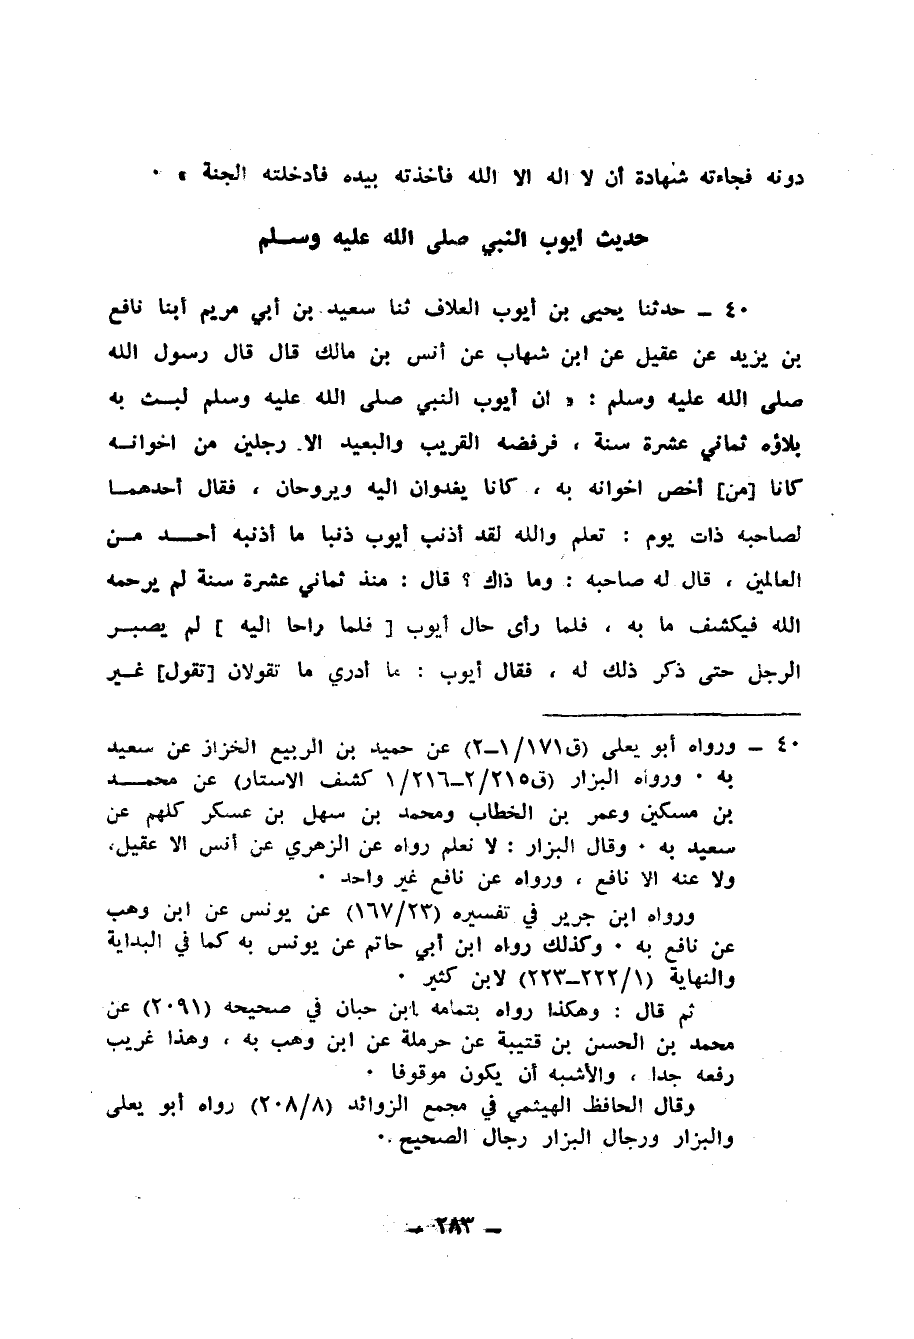 دونه فجاءته شهادة أن لا اله الا الله فأخذته بيده فأدخلته الجنة » ٠
حديث ايوب النبي صلى الله عليه وسـلم
٤٠ ـ حدثنا يحيى بن أيوب العلاف ثنا سعيد بن أبي مريم أبنا نافع
بن يزيد عن عقيل عن ابن شهاب عن أنس بن مالك قال قال رسول الله
صلى الله عليه وسلم : « ان أيوب النبي صلى الله عليه وسلم لبـث به
بلاؤه ثماني عشرة سنة ، فرفضه القريب والبعيد الا رجلين من اخوانـه
كانا [من] أخص اخوانه به ، كانا يغدوان اليه ويروحان ، فقال أحدهمـا
لصاحبه ذات يوم : تعلم والله لقد أذنب أيوب ذنبا ما أذنبه أحـــد مـن
العالمين ، قال له صاحبه : وما ذاك ؟ قال : منذ ثماني عشرة سنة لم يرحمه
الله فيكشف ما به ، فلما رأى حال أيوب [ فلما راحا اليه ] لم يصبـر
الرجل حتى ذكر ذلك له ، فقال أيوب : ما أدري ما تقولان [تقول] غـير
٤٠ ـ ورواه أبو يعلى (ق١/١٧١ـ٢) عن حميد بن الربيع الخزاز عن سعيد
به ٠ ورواه البزار (ق٢/٢١٥ـ١/٢١٦ كشف الاستار) عن محمـــد
بن مسكين وعمر بن الخطاب ومحمد بن سهل بن عسكر كلهم عن
سعيد به ٠ وقال البزار : لا نعلم رواه عن الزهري عن أنس الا عقيل،
ولا عنه الا نافع ، ورواه عن نافع غير واحد ٠
ورواه ابن جرير في تفسيره (١٦٧/٢٣) عن يونس عن ابن وهب
عن نافع به ٠ وكذلك رواه ابن أبي حاتم عن يونس به كما في البداية
والنهاية (٢٢٢/١ـ٢٢٣) لابن كثير ٠
ثم قال : وهكذا رواه بتمامه ابن حبان في صحيحه (٢٠٩١) عن
محمد بن الحسن بن قتيبة عن حرملة عن ابن وهب به ، وهذا غريب
رفعه جدا ، والأشبه أن يكون موقوفا ٠
وقال الحافظ الهيثمي في مجمع الزوائد (٢٠٨/٨) رواه أبو يعلى
والبزار ورجال البزار رجال الصحيح ٠
ـ ٢٨٣ ـ